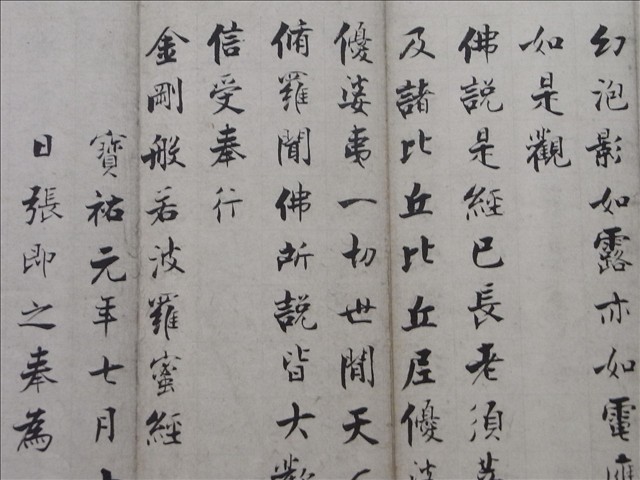 幻泡影如露亦如電應
如是觀
佛說是經已長老須菩
及諸比丘比丘尼優婆
優婆夷一切世間天人
脩羅聞佛所說皆大歡
信受奉行
金剛般若波羅蜜經
寶祐元年七月十
日張即之奉為